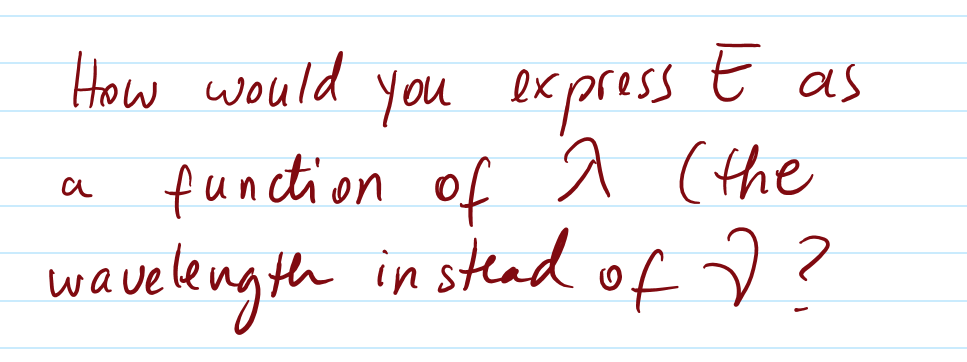 How would you express E as
a function of λ (the
wavelength instead of ν?